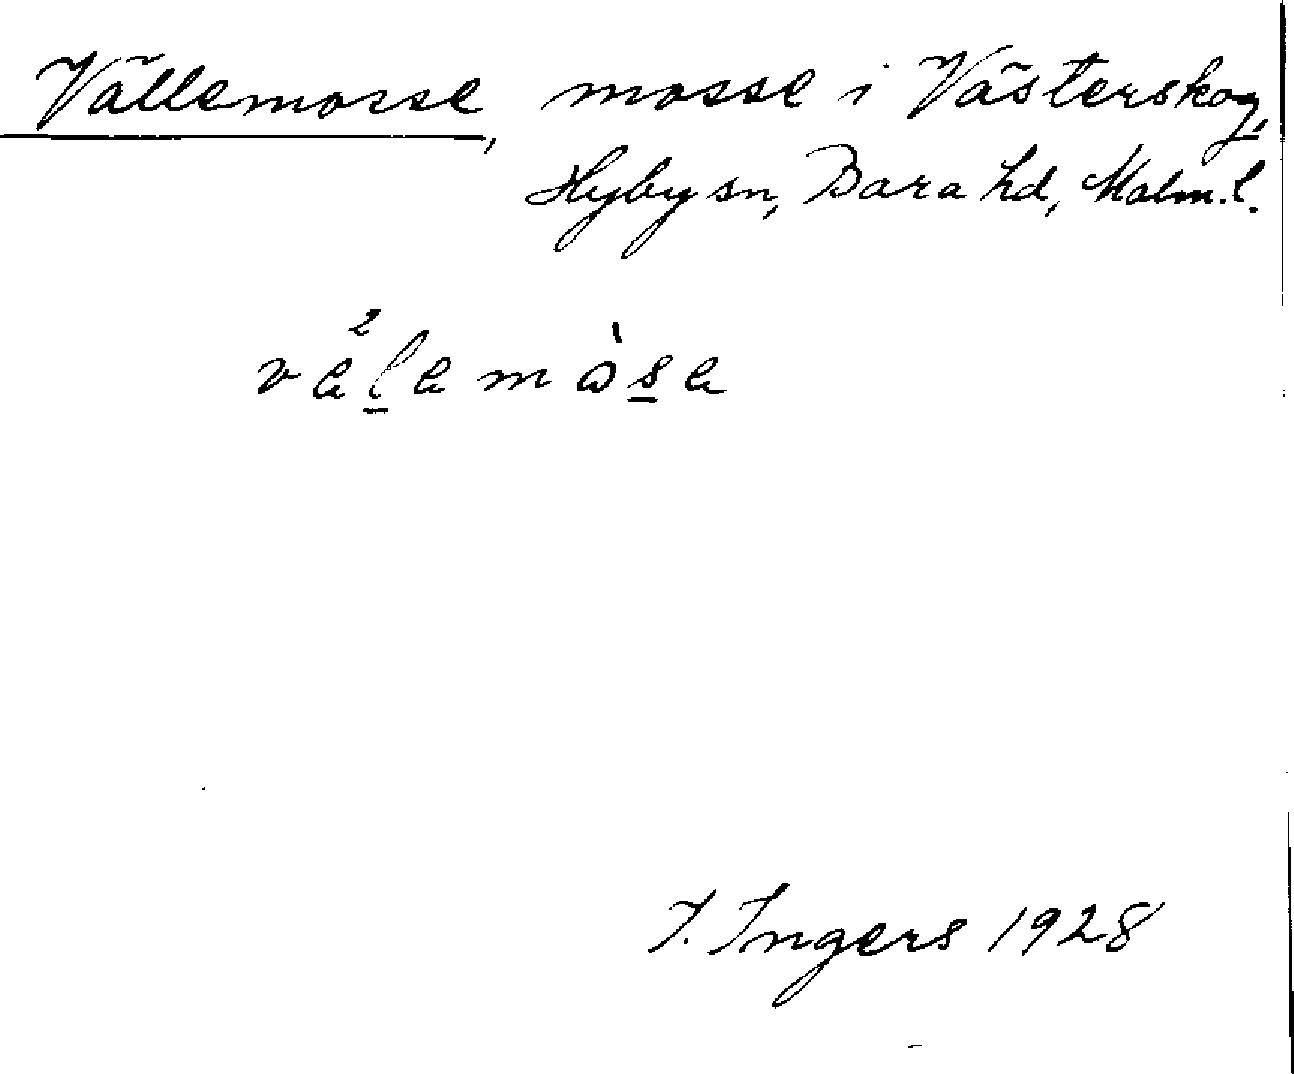 Vällemosse, mosse i Västerskog,
Hyby sn, Bara hd, Malm. l.
I. Ingers 1928